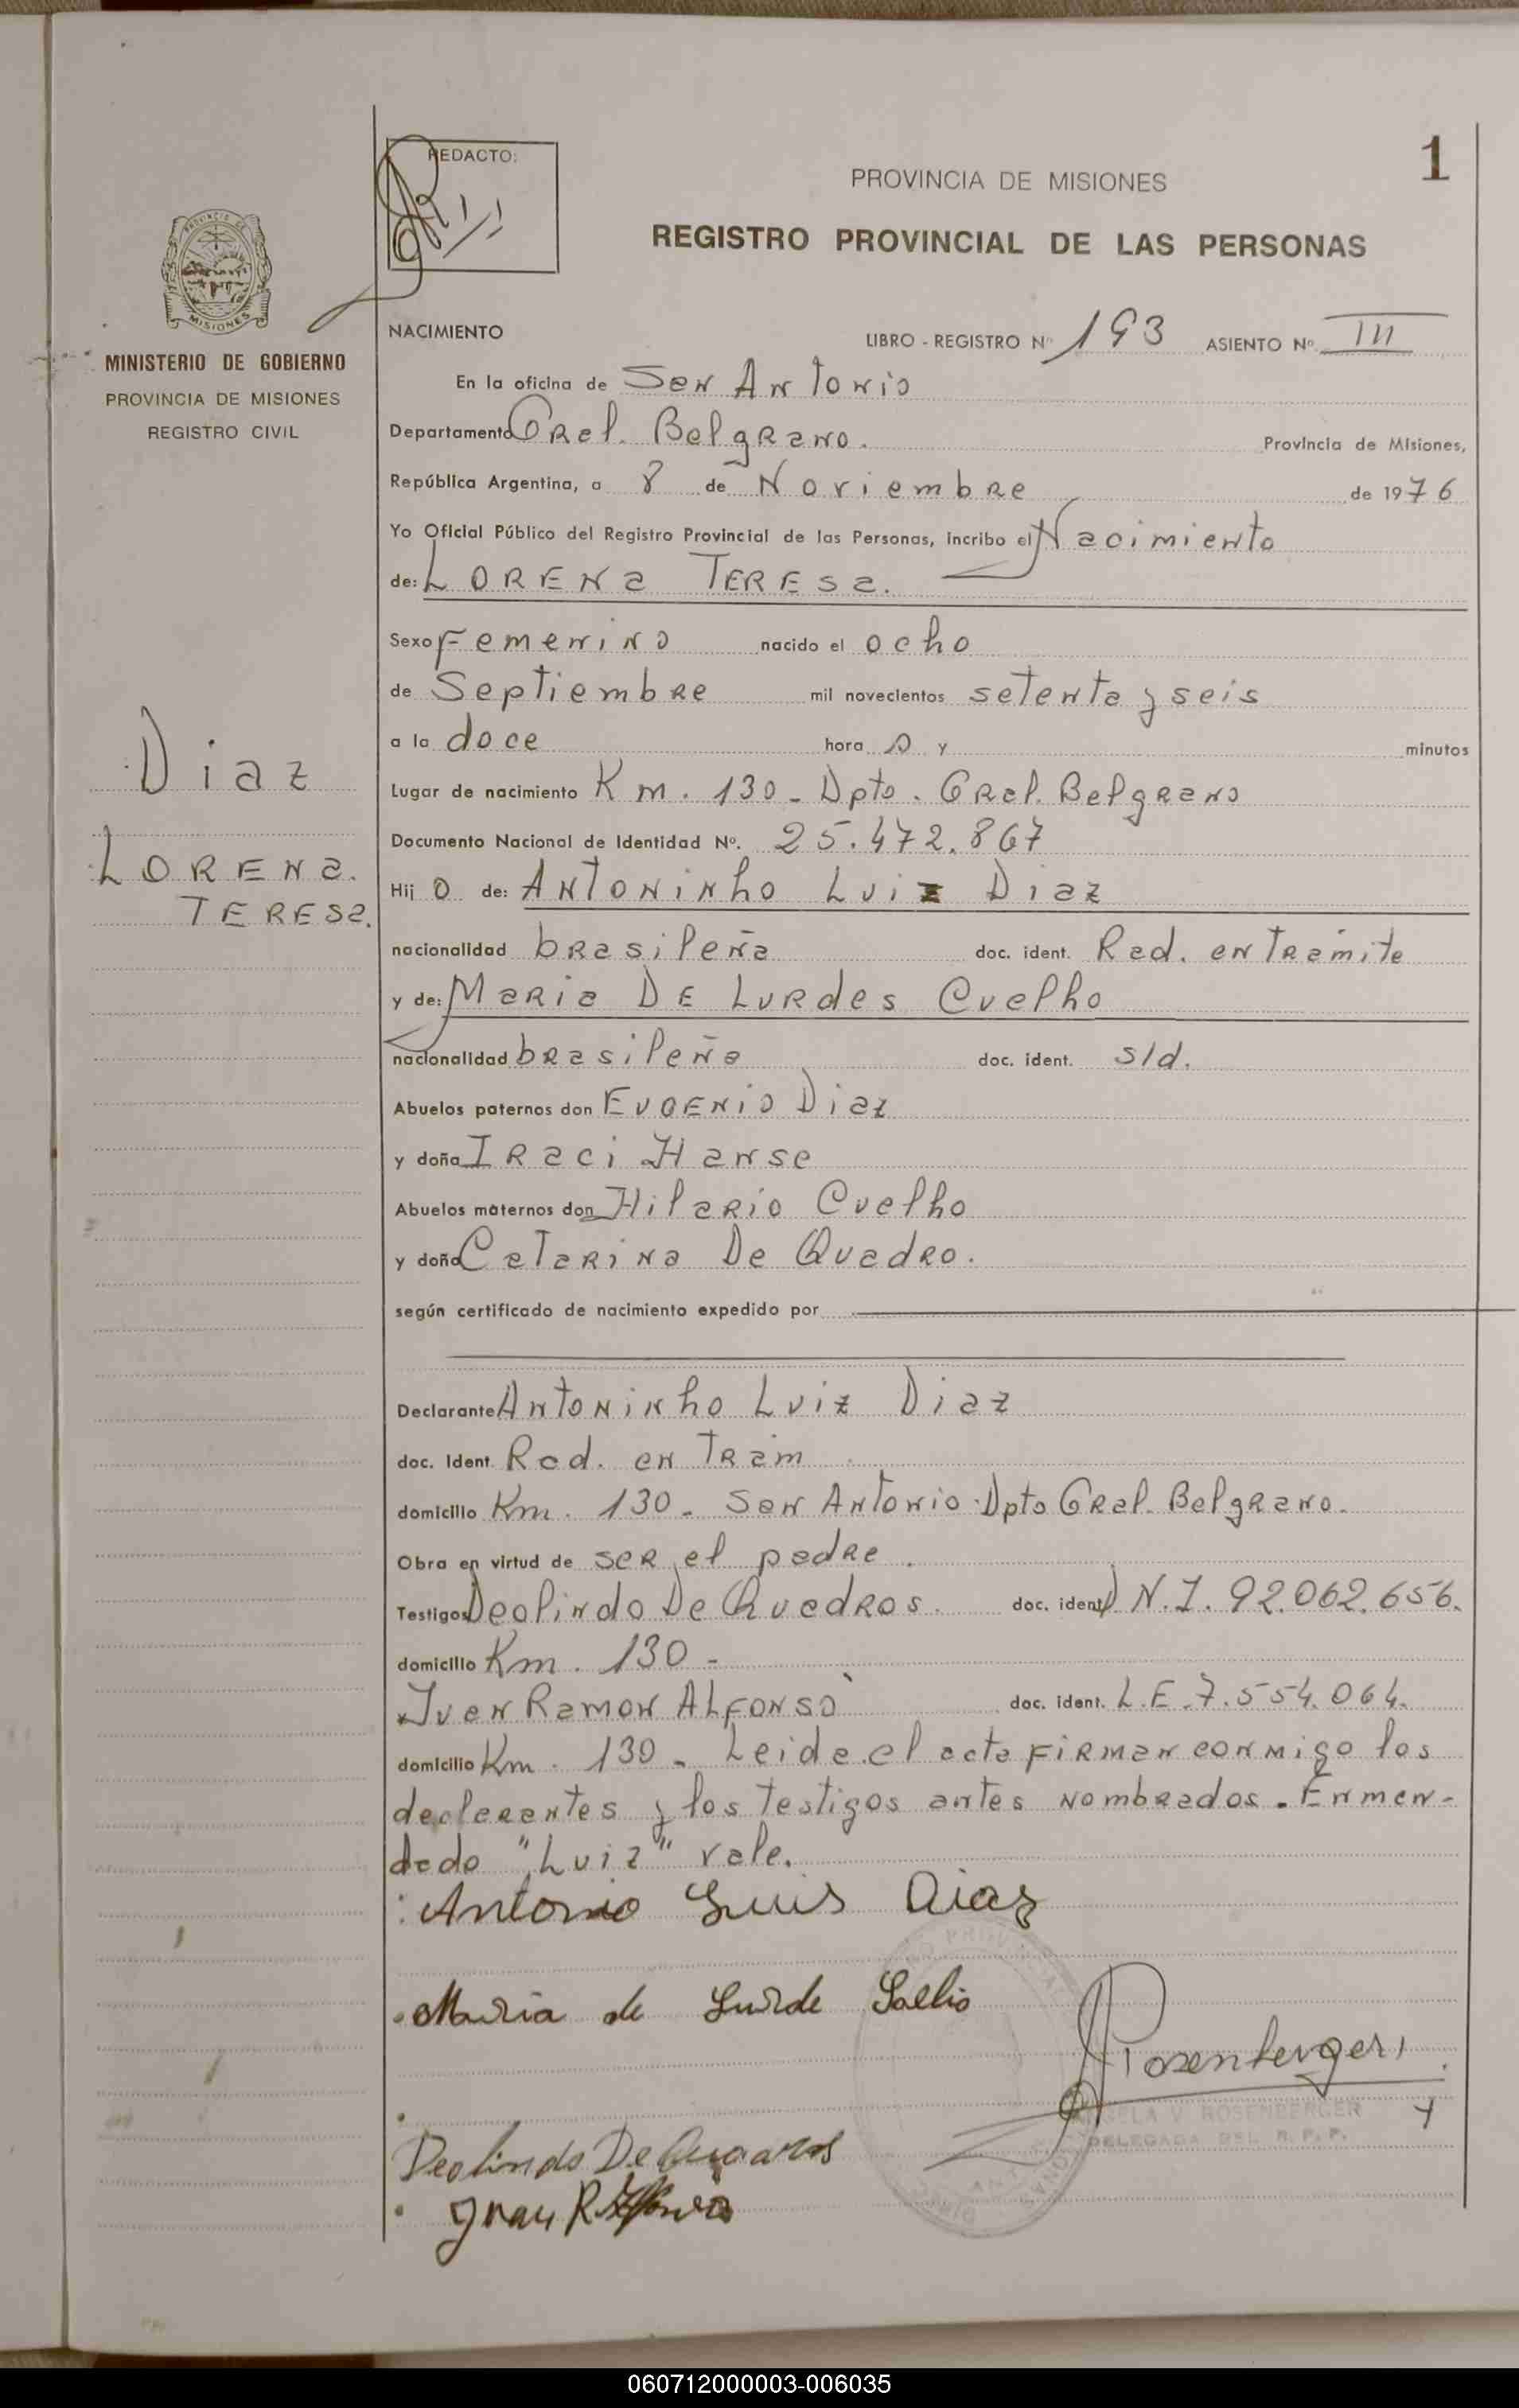 1
REDACTO:
PROVINCIA DE MISIONES
REGISTRO PROVINCIAL DE LAS PERSONAS
MISIONES
MINISTERIO DE GOBIERNO
PROVINCIA DE MISIONES
REGISTRO CIVIL
NACIMIENTO LIBRO - REGISTRO Nº 193 ASIENTO Nº III
En la oficina de San Antonio
Departamento Gral. Belgrano. Provincia de Misiones,
República Argentina, a 8 de Noviembre de 1976
Yo Oficial Público del Registro Provincial de las Personas, incribo el Nacimiento
de: LORENA TERESA.
Sexo Femenino nacido el ocho
de Septiembre mil novecientos setenta y seis
a la doce hora s y minutos
Diaz
LORENA.
TERESA.
Lugar de nacimiento Km. 130 - Dpto. Gral. Belgrano
Documento Nacional de Identidad Nº. 25.472.867
Hij o de: Antoninho Luiz Diaz
nacionalidad brasileña doc. ident. Rad. en Tramite
y de: Maria DE Lurdes Cuelho
nacionalidad brasileña doc. ident. s/d.
Abuelos paternos don EUGENIO Diaz
y doña IRaci Hanse
Abuelos maternos don Hilario Cuelho
y doña Catarina De Quadro.
según certificado de nacimiento expedido por
Declarante Antoninho Luiz Diaz
doc. Ident. Rad. en Tram
domicilio Km. 130 - San Antonio Dpto Gral. Belgrano.
Obra en virtud de ser el padre.
Testigos Deolindo De Quadros. doc. ident. D.N.I. 92.062.656.
domicilio Km. 130 -
Juan Ramon ALFONSO doc. ident. L.E. 7.554.064.
domicilio Km. 130 - Leida el acta firman conmigo los
declarantes y los testigos antes nombrados. Enmen-
dado "Luiz" vale.
Antonio Luis Diaz
Maria de Lurde
Rosenberger
ANGELA V. ROSENBERGER
DELEGADA DEL R. P. P.
Deolindo De Quadros
Juan R Alfonso
060712000003-006035